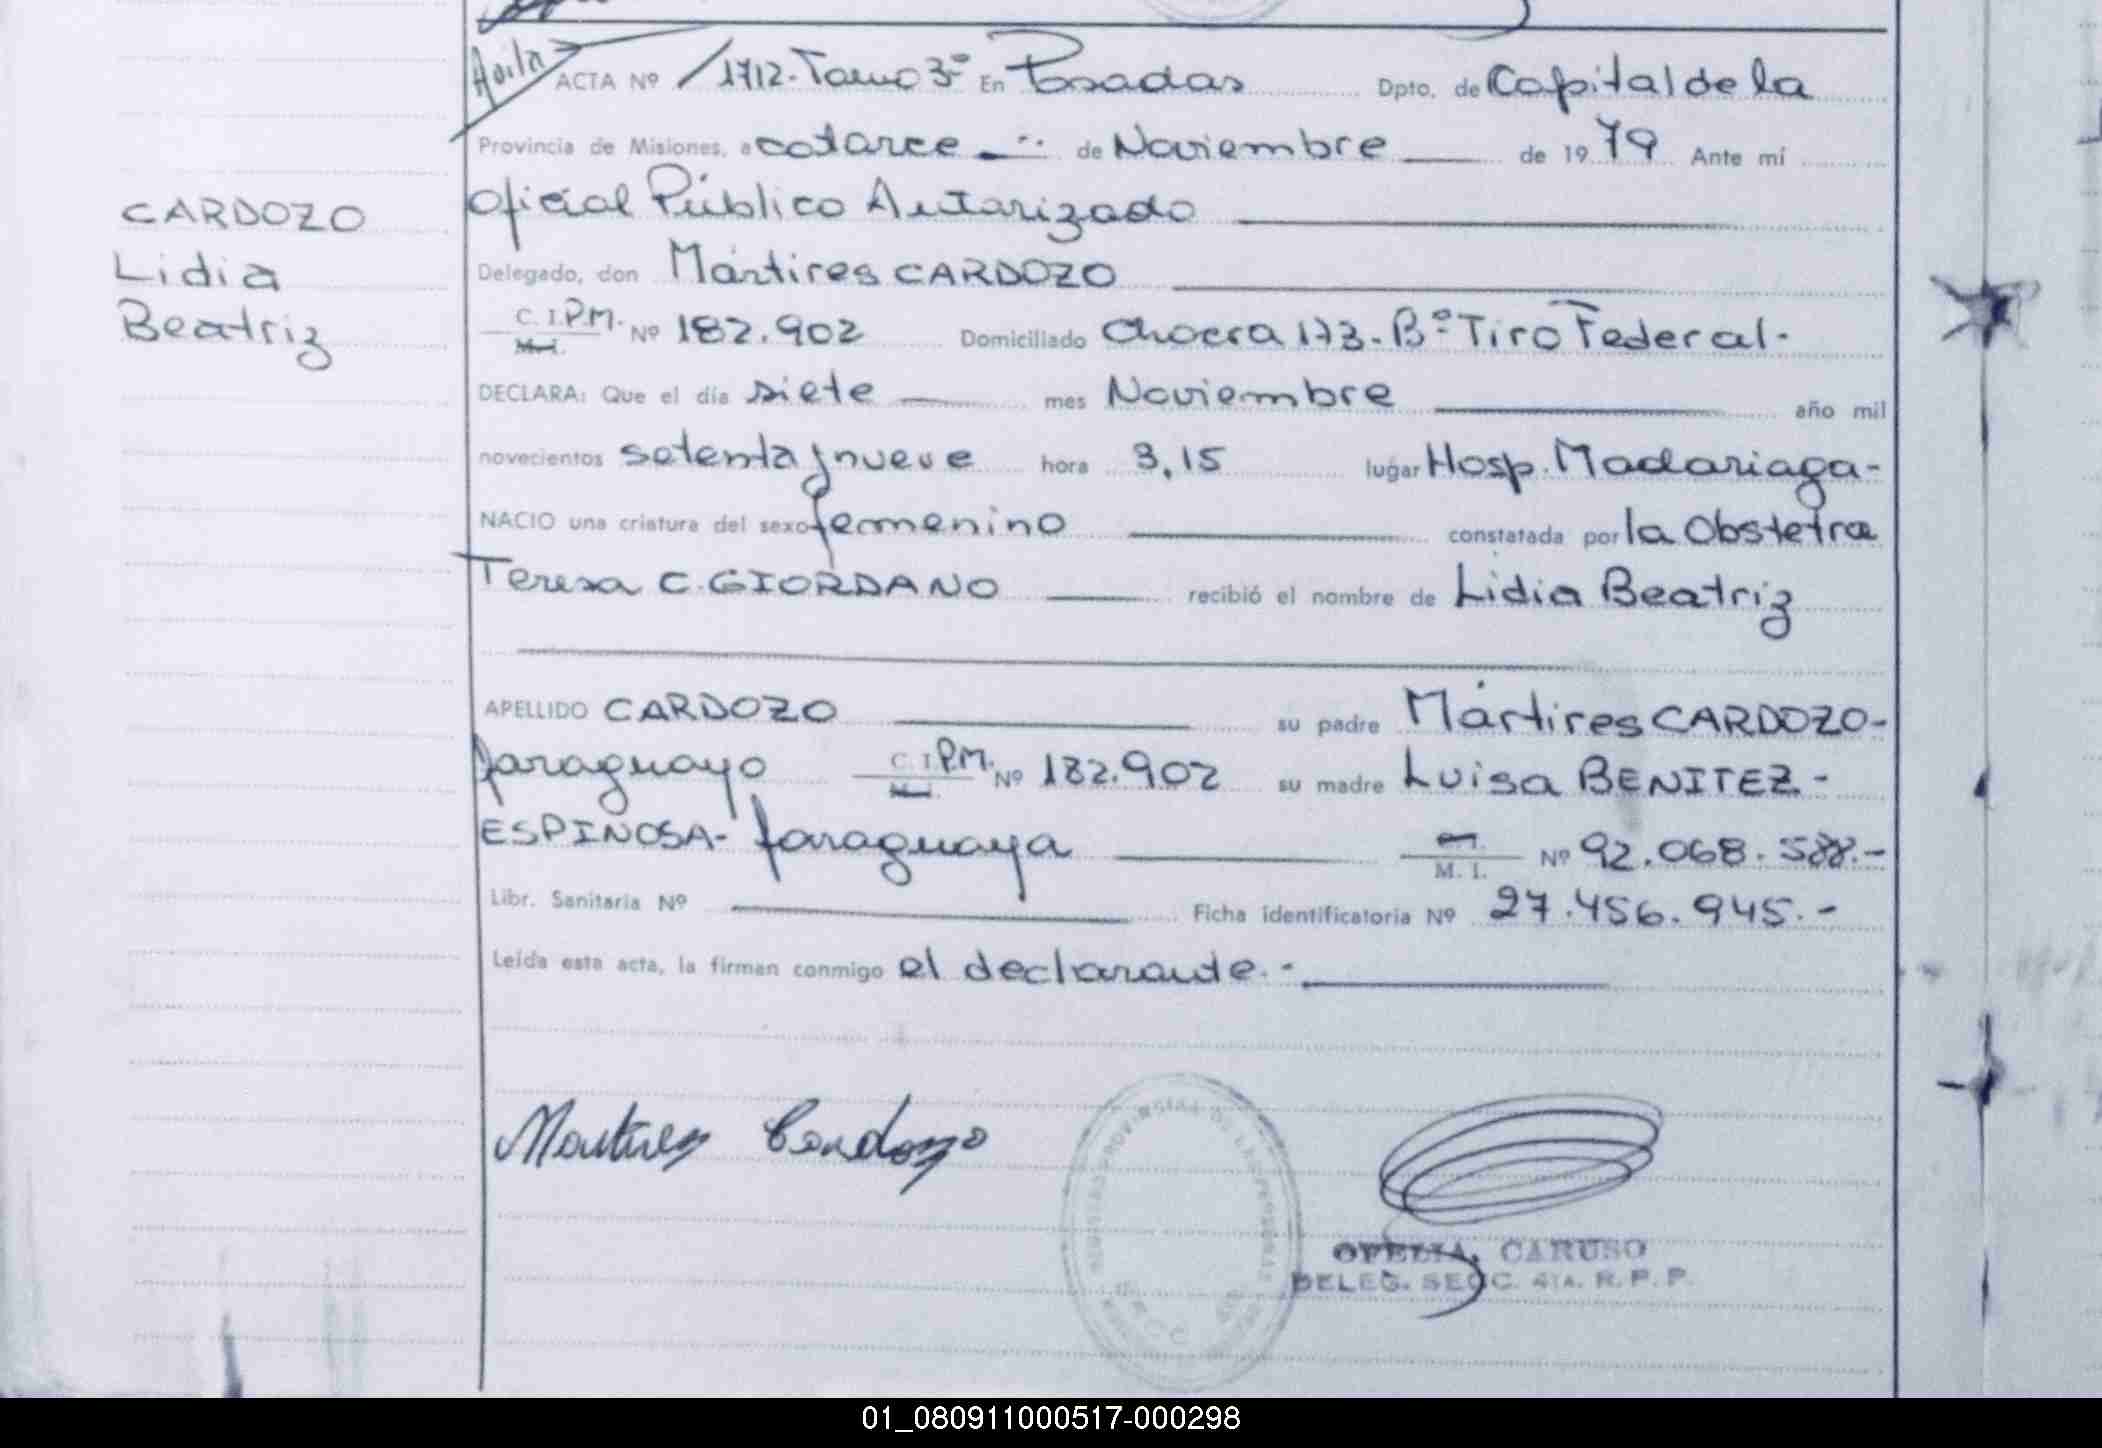 Avila
ACTA Nº 1712- Tomo 3º En Posadas Dpto. de Capital de la
Provincia de Misiones, a catorce de Noviembre de 19 79 Ante mí
Oficial Público Autorizado
CARDOZO
Lidia
Beatriz
Delegado, don Mártires CARDOZO
C. I. P.M. M.I. Nº 182.902 Domiciliado Chacra 173- Bº Tiro Federal-
DECLARA: Que el día siete mes Noviembre año mil
novecientos setenta y nueve hora 3,15 lugar Hosp. Madariaga-
NACIO una criatura del sexo femenino constatada por la Obstetra
Teresa C. GIORDANO recibió el nombre de Lidia Beatriz
APELLIDO CARDOZO su padre Mártires CARDOZO-
paraguayo C. I. P.M. M.I. Nº 182.902 su madre Luisa BENITEZ-
ESPINOSA- paraguaya M. I. Nº 92.068.588.-
Libr. Sanitaria Nº Ficha identificatoria Nº 27.456.945.-
Leída esta acta, la firman conmigo el declarante.-
Martires Cardozo
OFELIA CARUSO
DELEG. SECC. 4TA. R. P. P.
01_080911000517-000298